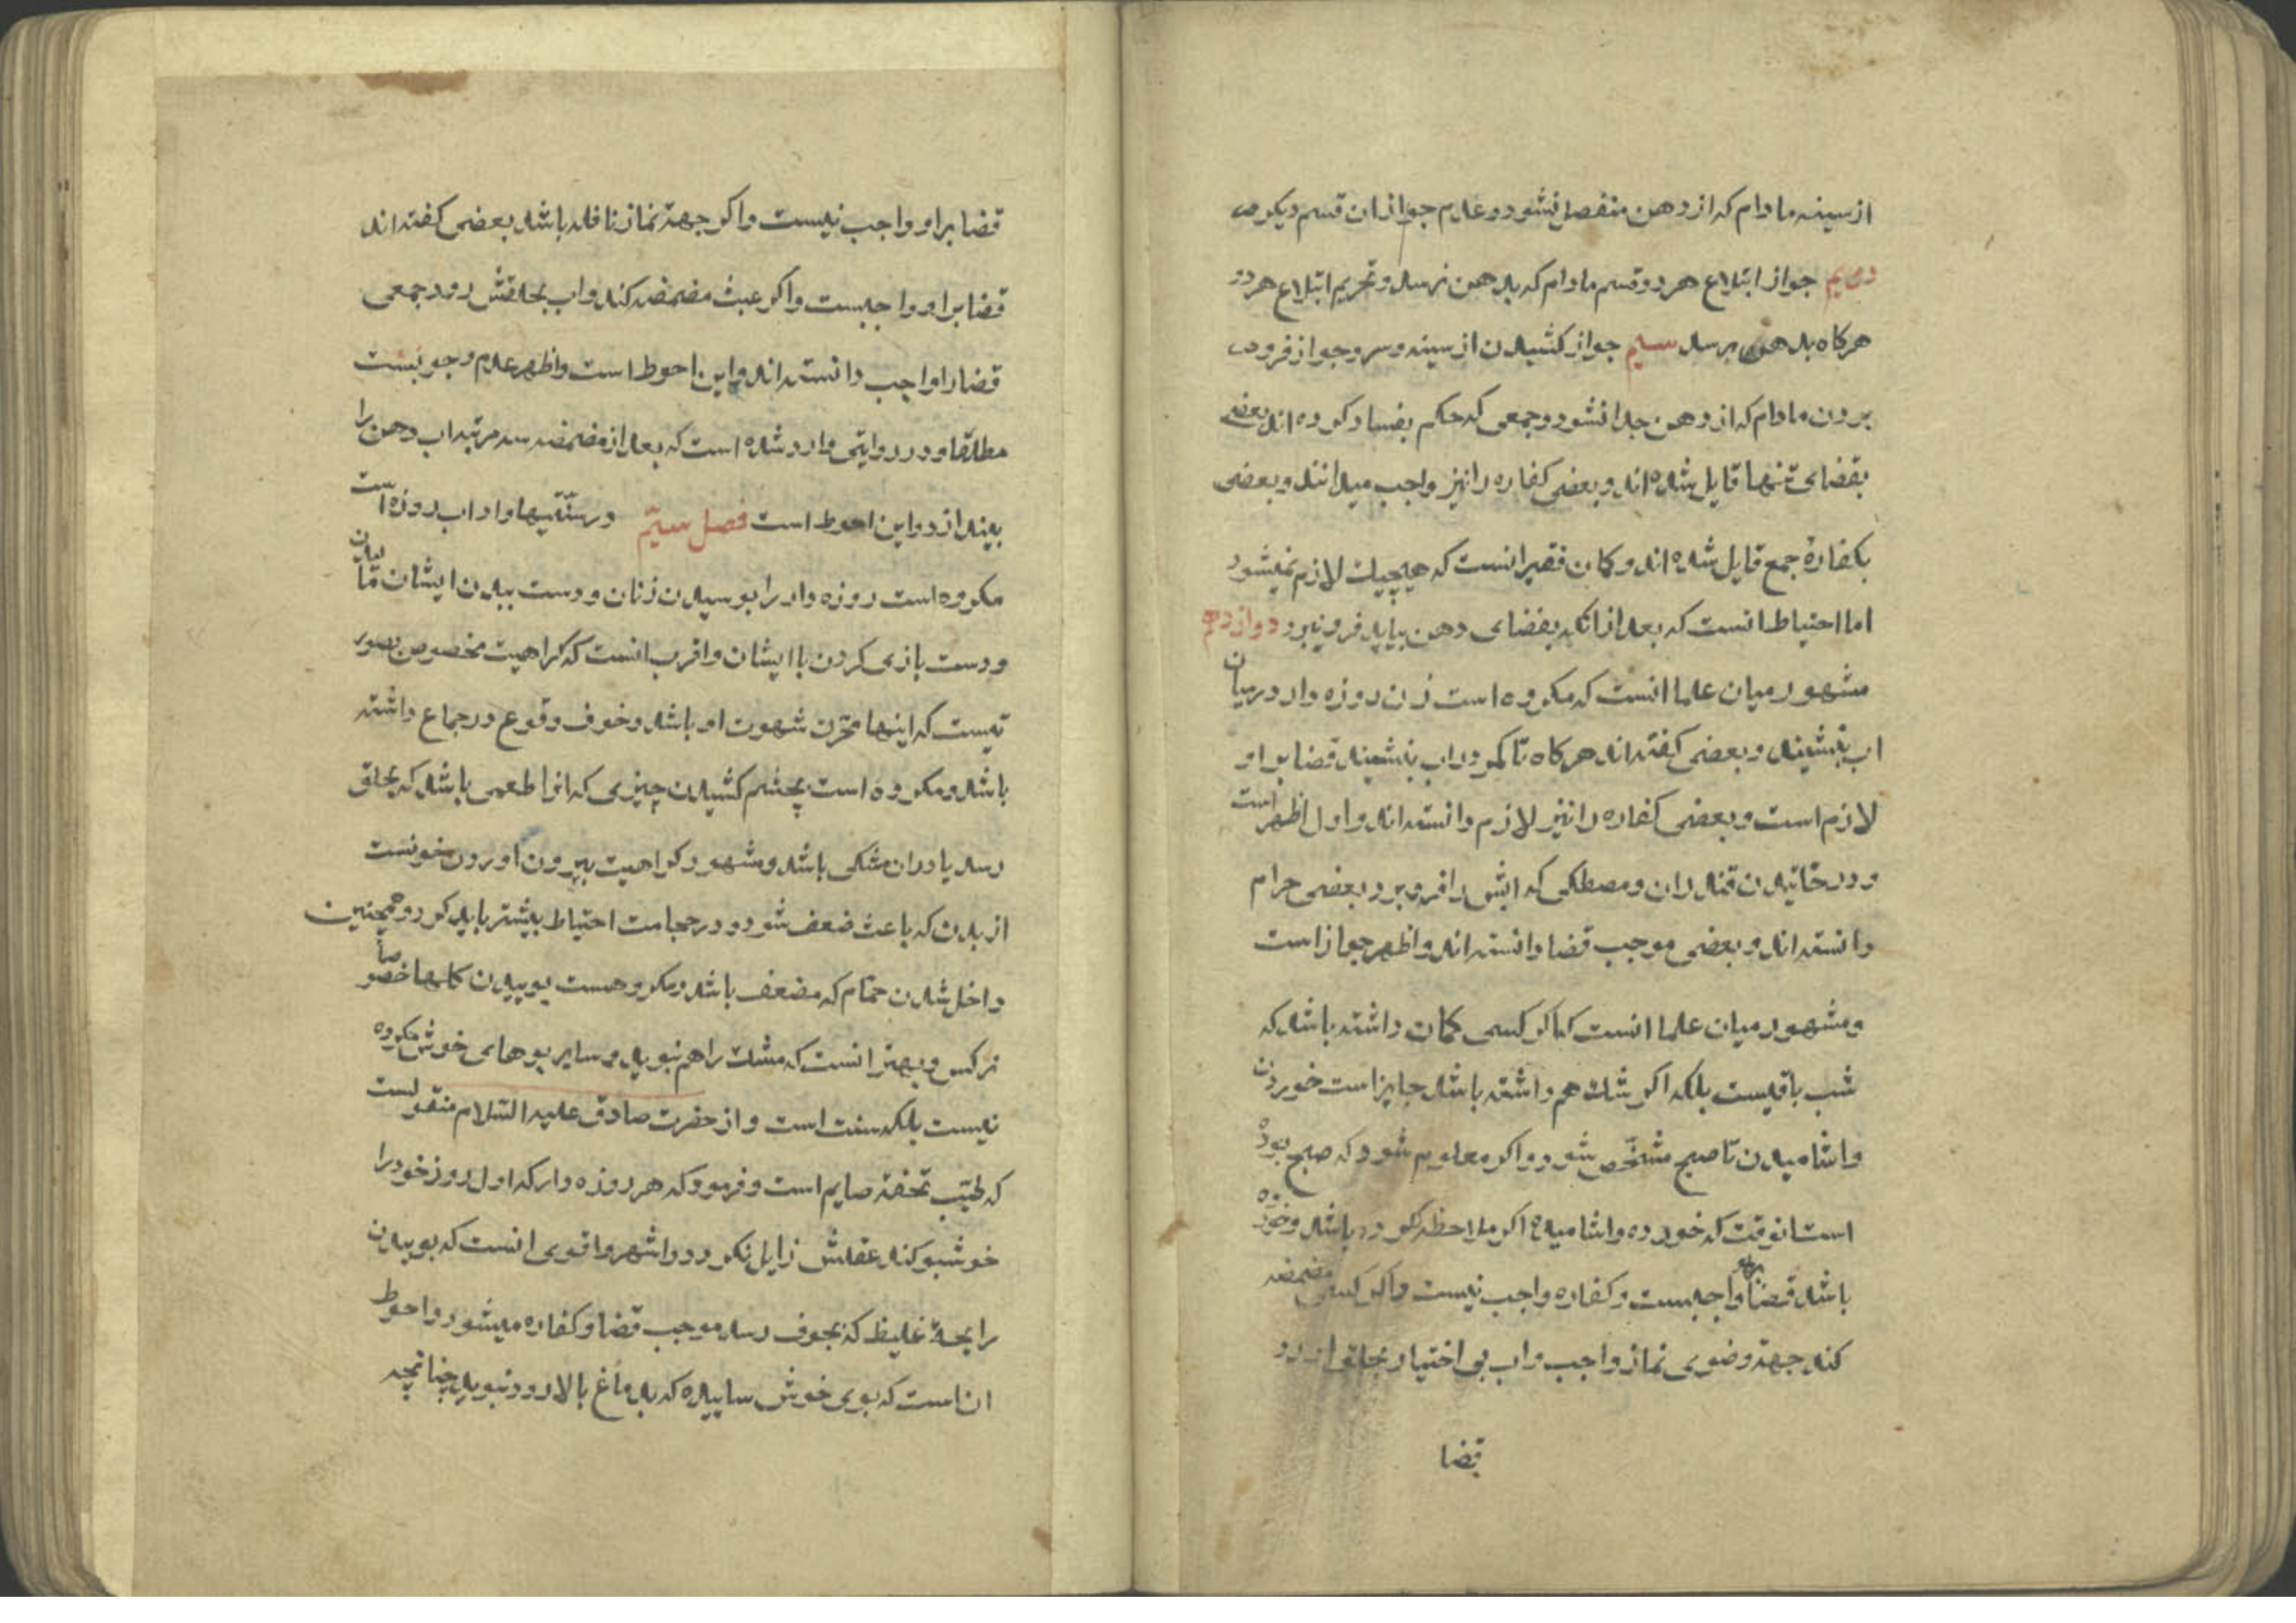 از سینه مادام که از دهن منفصل نشود و عدم جواز ان قسم دیکر
دویم جواز ابتلاع هر دو قسم مادام که بدهن نرسد و تحریم ابتلاع هر دو
هرکاه بدهن برسد سیم جواز کشیدن از سینه و سر و جواز فرو
بردن مادام که از دهن جدا نشود و جمعی که حکم بفساد کرده اند بعضی
بقضای تنها قایل شده اند و بعضی کفاره را نیز واجب میدانند و بعضی
بکفارهٔ جمع قایل شده اند و کمان فقیر انست که هیچیک لازم نمیشود
اما احتیاط انست که بعد از انکه بفضای دهن بیاید فرو نبرد دوازدهم
مشهور میان علما انست که مکروه است زن روزه دار در میان
اب بنشیند و بعضی کفته اند هرکاه تا کمر در اب بنشیند قضا بر او
لازم است و بعضی کفاره را نیز لازم دانسته اند و اول اظهر است
و در خائیدن قندران و مصطکی که ابش را فرو برد بعضی حرام
دانسته اند و بعضی موجب قضا دانسته اند و اظهر جواز است
و مشهور میان علما انست که اکر کسی کمان داشته باشد که
شب باقیست بلکه اکر شک هم داشته باشد جایز است خوردن
و اشامیدن تا صبح مشخّص شود و اکر معلوم شود که صبح بوده
است انوقت که خورده و اشامیده اکر ملاحظه نکرده باشد و خورده
باشد قضا واجبست و کفاره واجب نیست و اکر کسی مضمضه
کند جهة وضوی نماز واجب و اب بی اختیار بحلق او رود
قضا
قضا بر او واجب نیست و اکر جهة نماز نافله باشد بعضی کفته اند
قضا بر او واجبست و اکر عبث مضمضه کند و اب بحلقش رود جمعی
قضا را واجب دانسته اند و این احوط است و اظهر عدم وجوبست
مطلقا و در روایتی وارد شده است که بعد از مضمضه سه مرتبه اب دهن را
بیندازد و این احوط است فصل سیّم در سنّتیها و اداب روزه است
مکروه است روزه دار را بوسیدن زنان و دست ببدن ایشان مالیدن
و دست بازی کردن با ایشان و اقرب انست که کراهیت مخصوص بصور
تیست که اینها محرّک شهوت او باشد و خوف وقوع در جماع داشته
باشد و مکروه است بچشم کشیدن چیزی که انرا طعمی باشد که بحلق
رسد یا دران مشکی باشد و مشهور کراهیت بیرون اوردن خونست
از بدن که باعث ضعف شود و در حجامت احتیاط بیشتر باید کرد و همچنین
داخل شدن حمّام که مضعف باشد و مکروهست بوییدن کلها خصوصاً
نرکس و بهتر انست که مشک را هم نبوید و سایر بوهای خوش مکروه
نیست بلکه سنت است و از حضرت صادق علیه السّلام منقولست
که طیّب تحفهٔ صایم است و فرمود که هر روزه دار که اول روز خود را
خوشبو کند عقلش زایل نکردد و اشهر و اقوی انست که بوییدن
رایحهٔ غلیظ که بجوف رسد موجب قضا و کفاره میشود و احوط
ان است که بوی خوش ساییده که بدماغ بالا رود نبوید چنانچه